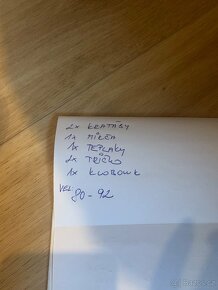 2x KRAŤASY
1x MIKČA
1x TEPLÁKY
2x TRIČKO
1x KLOBOUK
VEL 80-92